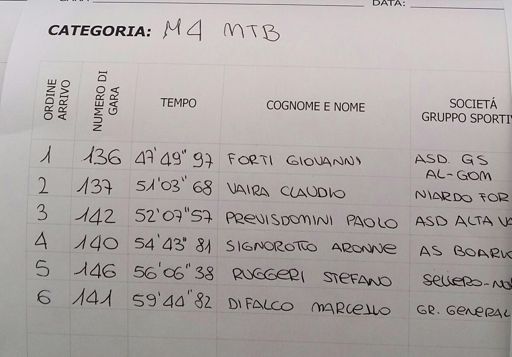 DATA:
CATEGORIA: M4 MTB
ORDINE ARRIVO NUMERO DI GARA TEMPO COGNOME E NOME SOCIETÁ GRUPPO SPORTIV
1 136 47'49"97 FORTI GIOVANNI ASD. GS AL-GOM
2 137 51'03"68 VAIRA CLAUDIO NIARDO FOR
3 142 52'07"57 PREVISDOMINI PAOLO ASD ALTA VA
4 140 54'43"81 SIGNOROTTO ARONNE AS BOARIO
5 146 56'06"38 RUGGERI STEFANO SELLERO-NO
6 141 59'44"82 DIFALCO MARCELLO GR. GENERAL